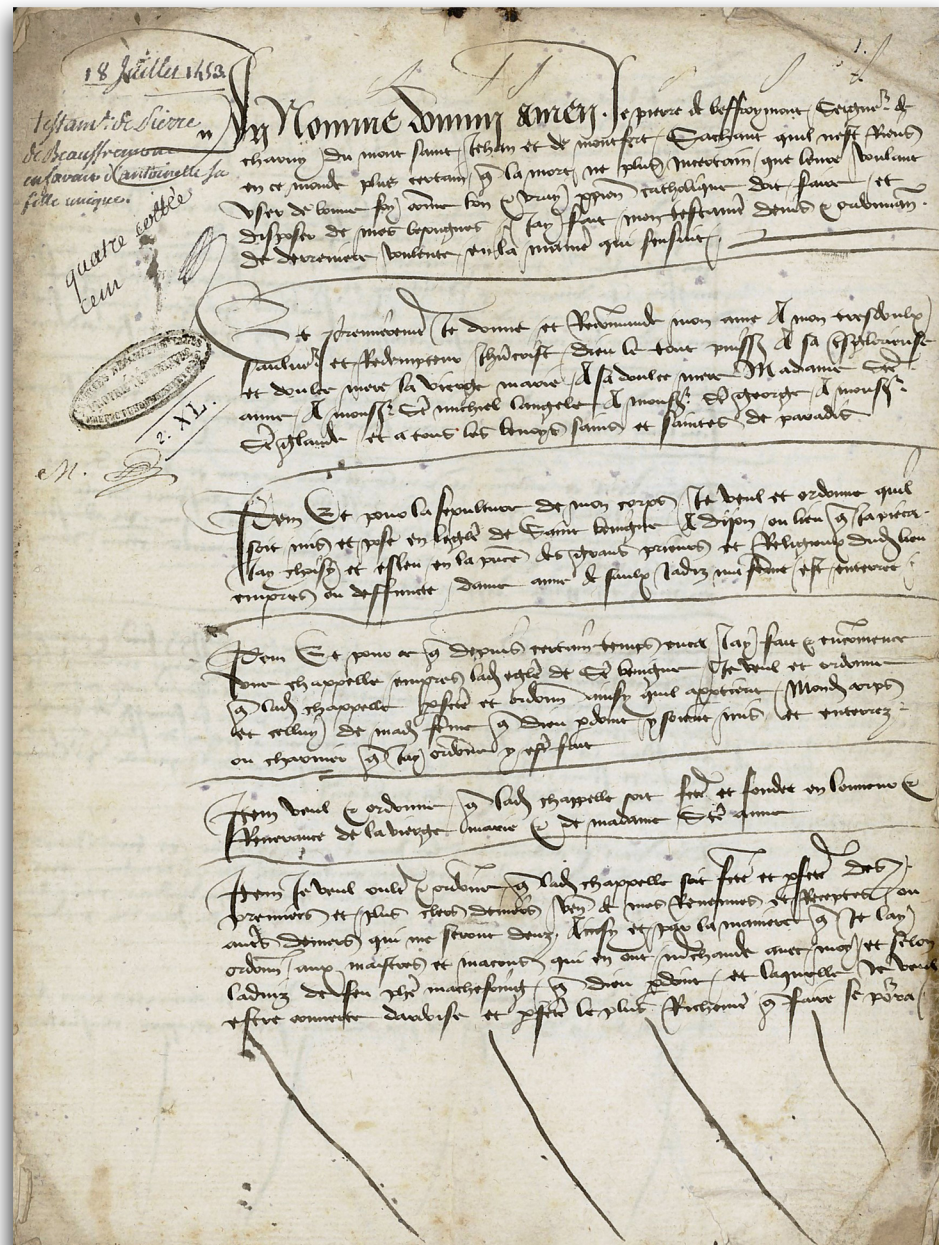 18 Juillet 1453.
testam.t de Pierre
de Beauffremont
en faveur d'antoinette sa
fille unique.
quatre cottée
cein
2. XL.
M.
In Nomine domini amen. Je pierre de beffroymont Seigne.r de
charny du mont saint Jehan et de montfort Saichant quil nest Riens
en ce monde plus certain q la mort ne plus Incertain que leure voulant
user de bonne foy come bon & vray xpien catholique doit faire et
disposer de mes besoignes Jay fait mon testamt devis & ordonnan
de derreniere voulente en la maniere qui sensuit
Et premierement Je donne et Recomande mon ame A mon tresdoulx
saulueur et Redempteur Jhucrist dieu le tout puissa A sa glorieuse
et doulce mere la vierge marie A sa doulce mere Madame Ste
anne A monsr St michiel langele A monsr St george A monsr
St glaude et a tous les benoys sains et saintes de paradis
Item Et pour la sepulture de mon corps Je veul et ordonne quil
soit mis et pose en leglise de Saint benigne A dijon ou lieu q Ja pieca
Jay choisy et esleu en la pnce des grans prieurs et Religieux dud lieu
empres ou deffuncte dame anne de saulx Jadiz ma feme est enterree
Item Et pour ce q depuis certain temps enca Jay fait & encomence
une chappelle empres lad eglise de St benigne Je veul et ordonne
q lad chappelle pfete et ordonn ainsy quil apptient Mond corps
et celluy de mad feme q dieu pdoint y soient mis et enterrez
ou charnier q Jay ordonne y estre fait
Item veul & ordonne q lad chappelle soit fete et fondee en lonneur &
Reverance de la vierge marie & de madame Ste anne
Item Je veul oult & ordonne q lad chappelle soit fete et pfete des
premiers et plus clers deniers ven de mes Revenues et Receptes ou
aults deniers qui me seront deuz Ainsy et par la maniere q Je lay
ordonn aux maistres et macons qui en ont mchande avec moy et selon
ladviz de feu phe machefoing q dieu pdoint et laquelle Je veul
estre couverte dardoise et pfete le plus Richemt q faire se pora